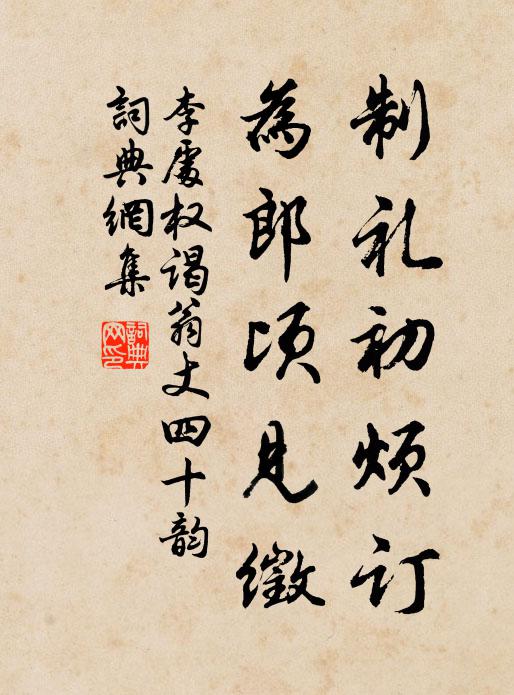 制礼初烦订
為郎顷見徵
李處权谒翁丈四十韵
詞典網集
詞典网印